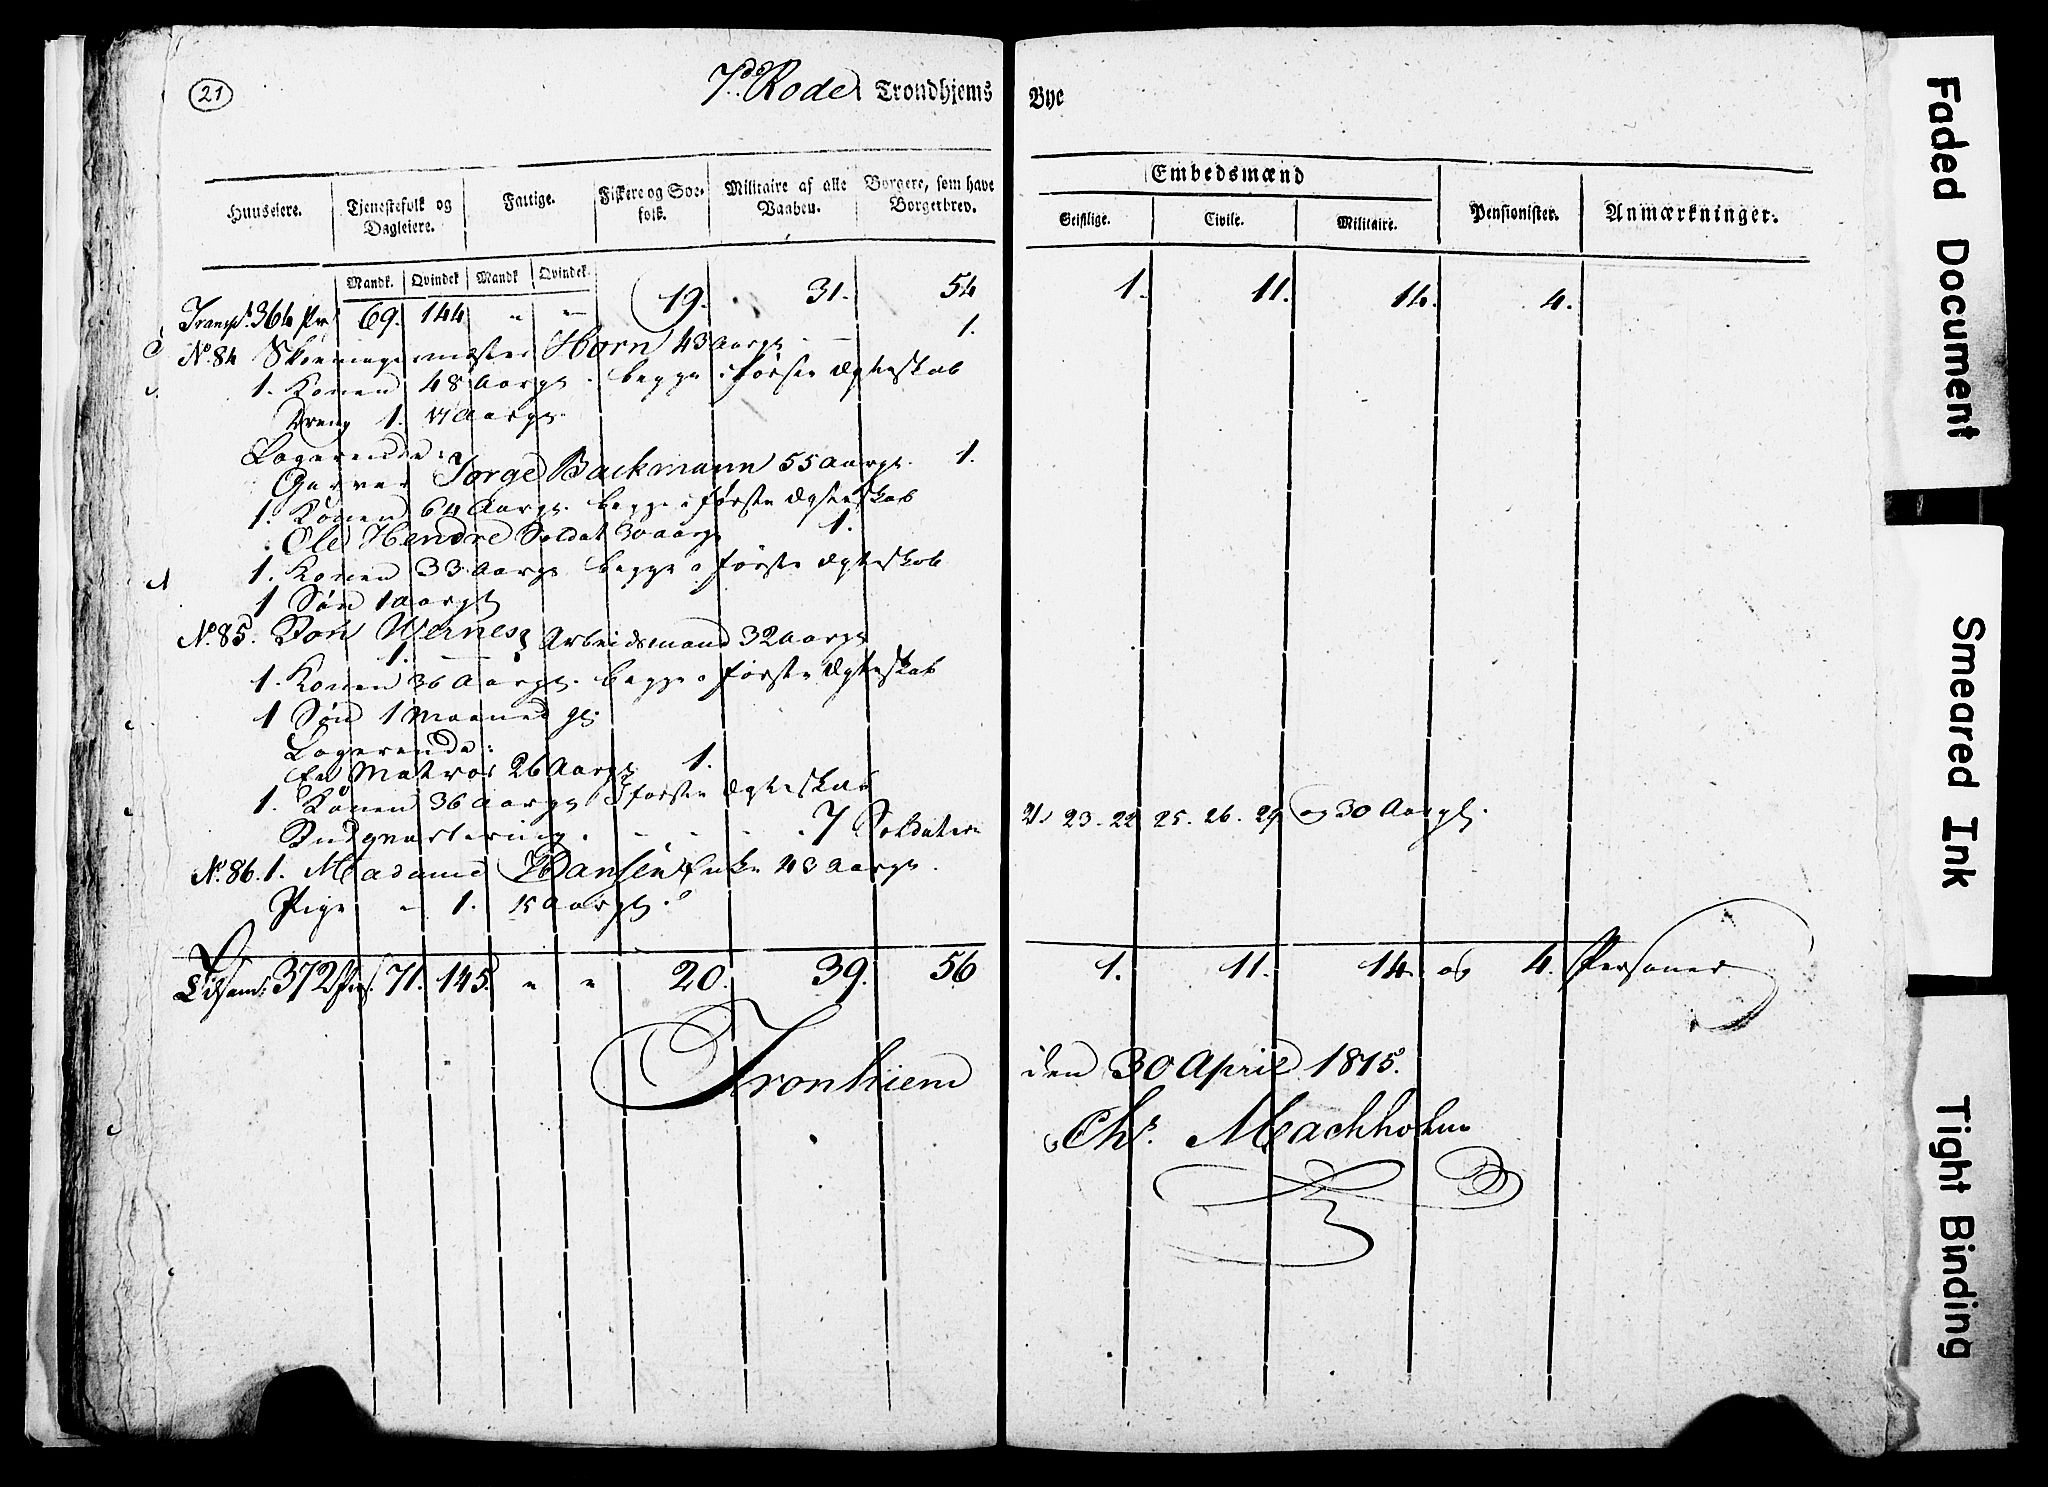 21
7de Rode Trondhjems Bye
Huuseiere. Tjenestefolk og Dagleiere. Fattige. Fiskere og Søe-folk. Militaire af alle Vaaben. Borgere, som have Borgerbrev. Embedsmænd Pensionister. Anmærkninger.
Geistlige. Civile. Militaire.
Mandk. Qvindek Mandk Qvindek.
Transpt. 364 Prs 69. 144 " " 19. 31. 54 1. 11. 14. 4.
No. 84 Horn 43 Aargl 1.
1. Konen 48 Aargl. begge i første Ægteskab
Dreng 1. 17 Aargl.
Logerende:
Garver Jørge Backmann 55 Aargl. 1.
1. Konen 64 Aargl. begge i første Ægteskab
Ole Hendre Soldat 30 aargl 1.
1. Konen 33 Aargl begge i første Ægteskab
1 Søn 1 Aargl
No. 85. Jon Wernes Arbeidsmand 32 Aargl
1.
1. Konen 36 Aargl. begge i første Ægteskab
1 Søn 1 Maaned gl.
Logerende:
En Matros 26 Aargl 1.
1. Konen 36 Aargl I første Ægteskab
Indqvartering. 7 Soldater 21. 23. 22 25. 26. 29 og 30 Aargl.
No. 86. 1. Madame Hansen Enke 43 Aargl.
Pige " 1. 15 Aargl.
Tilsam: 372 Prs. 71. 145. " " 20. 39. 56 1. 11. 14. og 4. Personer
Tronhiem den 30 April 1815.
Chr. Machholm
Faded Document
Smeared Ink
Tight Binding